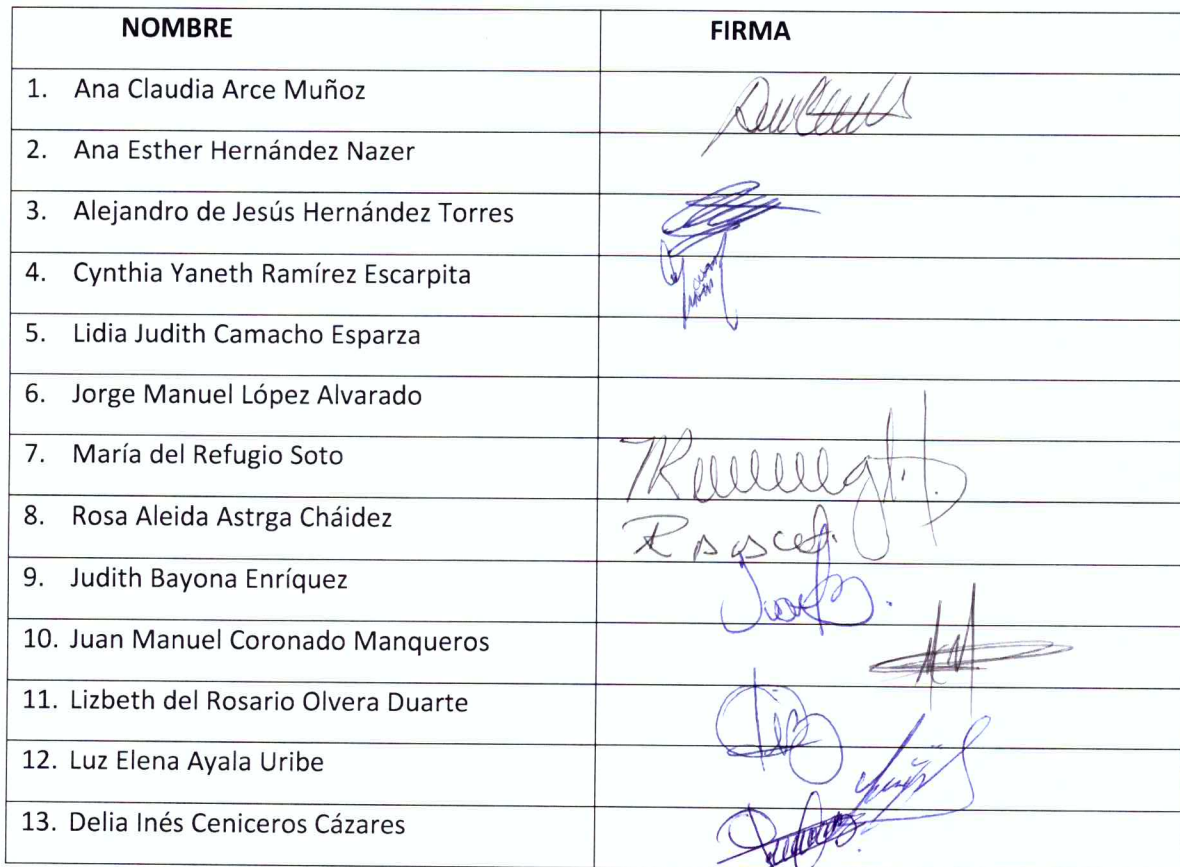 NOMBRE FIRMA
1. Ana Claudia Arce Muñoz
2. Ana Esther Hernández Nazer
3. Alejandro de Jesús Hernández Torres
4. Cynthia Yaneth Ramírez Escarpita
5. Lidia Judith Camacho Esparza
6. Jorge Manuel López Alvarado
7. María del Refugio Soto
8. Rosa Aleida Astrga Cháidez
9. Judith Bayona Enríquez
10. Juan Manuel Coronado Manqueros
11. Lizbeth del Rosario Olvera Duarte
12. Luz Elena Ayala Uribe
13. Delia Inés Ceniceros Cázares